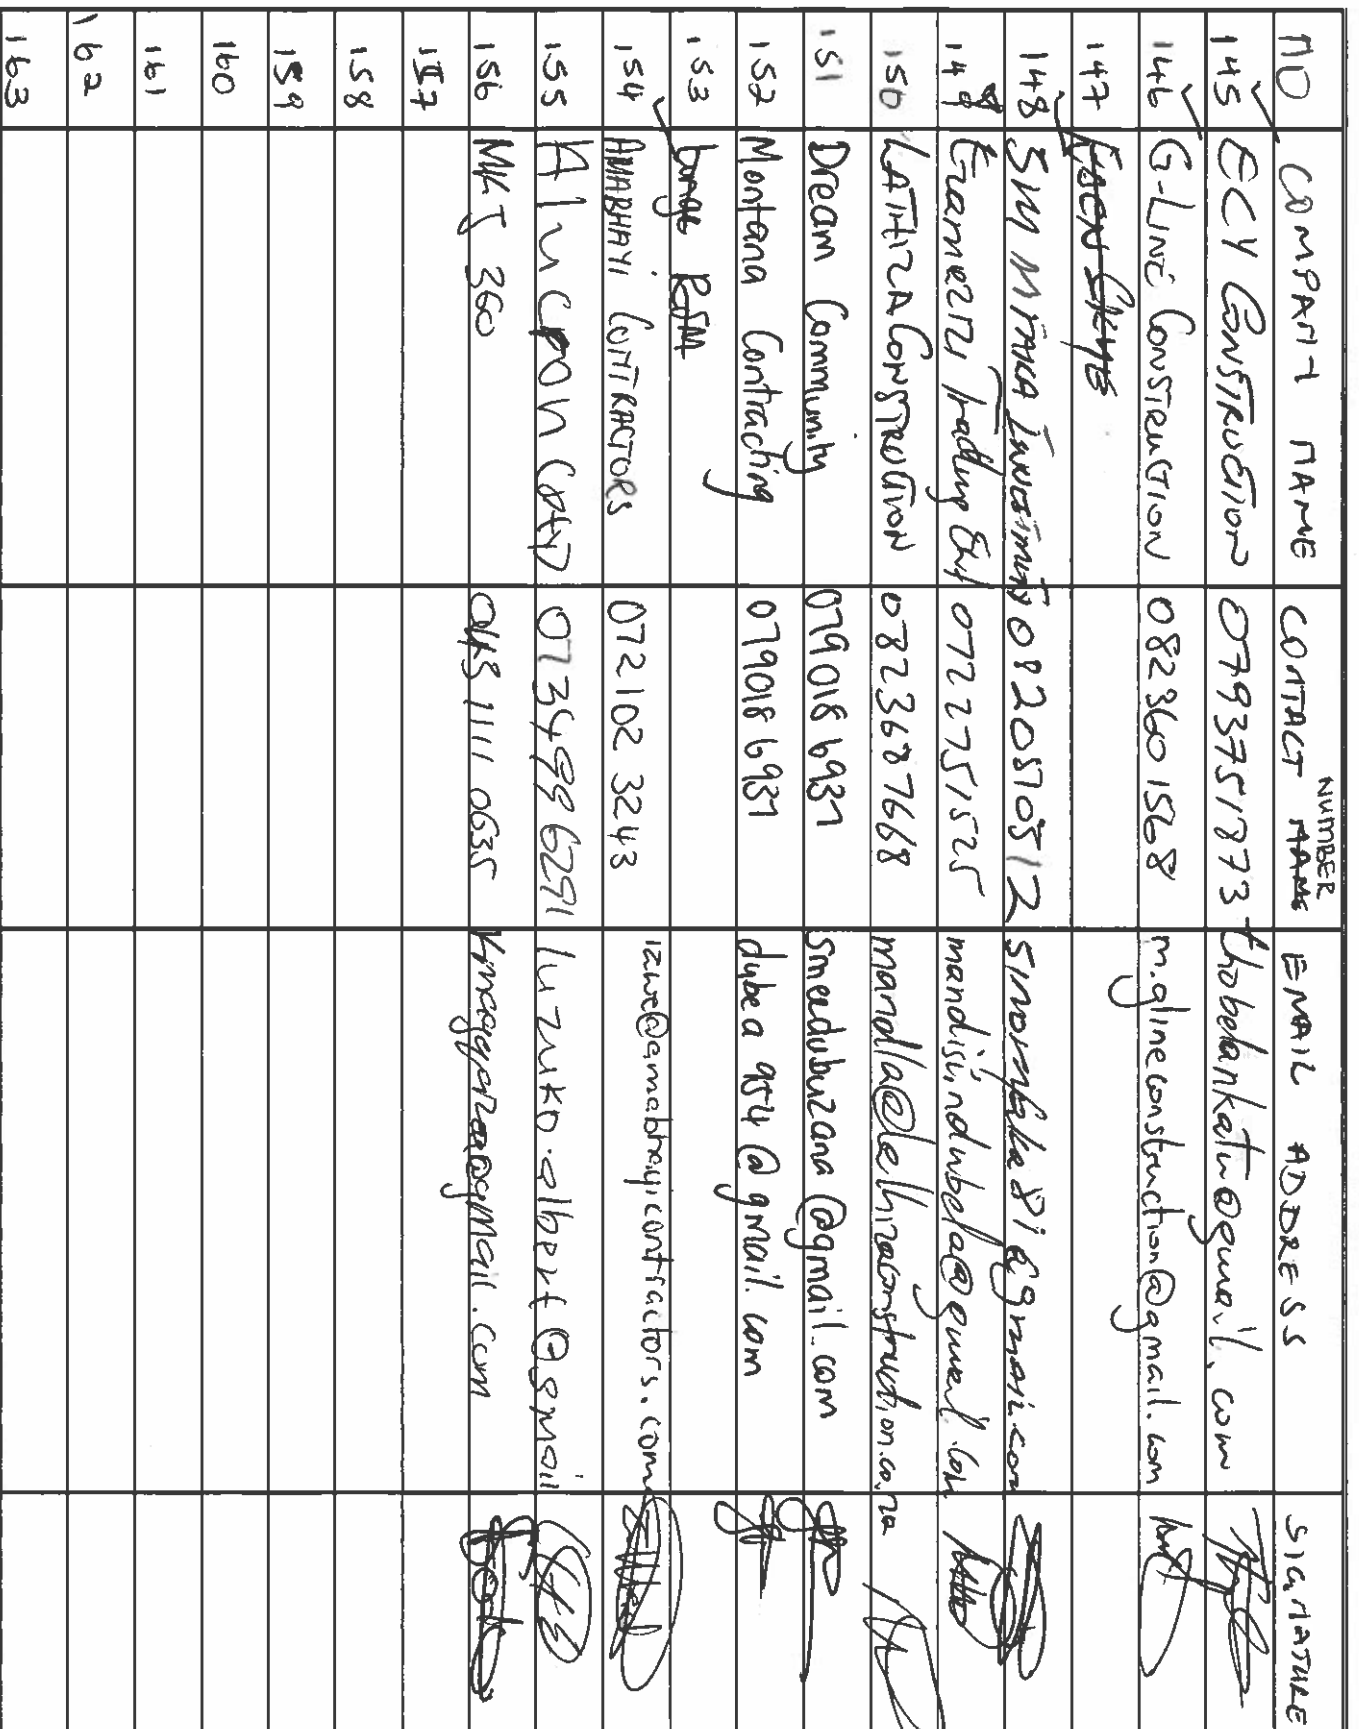 NO COMPANY NAME CONTACT NUMBER EMAIL ADDRESS SIGNATURE
145 ECY CONSTRUCTION 0793751873 thobelankatu@gmail.com
146 G-LINE CONSTRUCTION 0823601568 m.glineconstruction@gmail.com
147
148 SM MFAKA Investments 0820570512 sinomfaka81@gmail.com
149 Trading Ent 0722751525 mandisindubela@gmail.com
150 LATHIZA CONSTRUCTION 0823687668
151 Dream Community 0790186937 smeedubuzana@gmail.com
152 Montana Contracting 0790186937 dubea954@gmail.com
153
154 AMABHAYI CONTRACTORS 072 102 3243 izawe@amabhayicontractors.com
155 Alucpon (Pty) 0734996291 luzuko.albert@gmail
156 MKJ 360
157
158
159
160
161
162
163